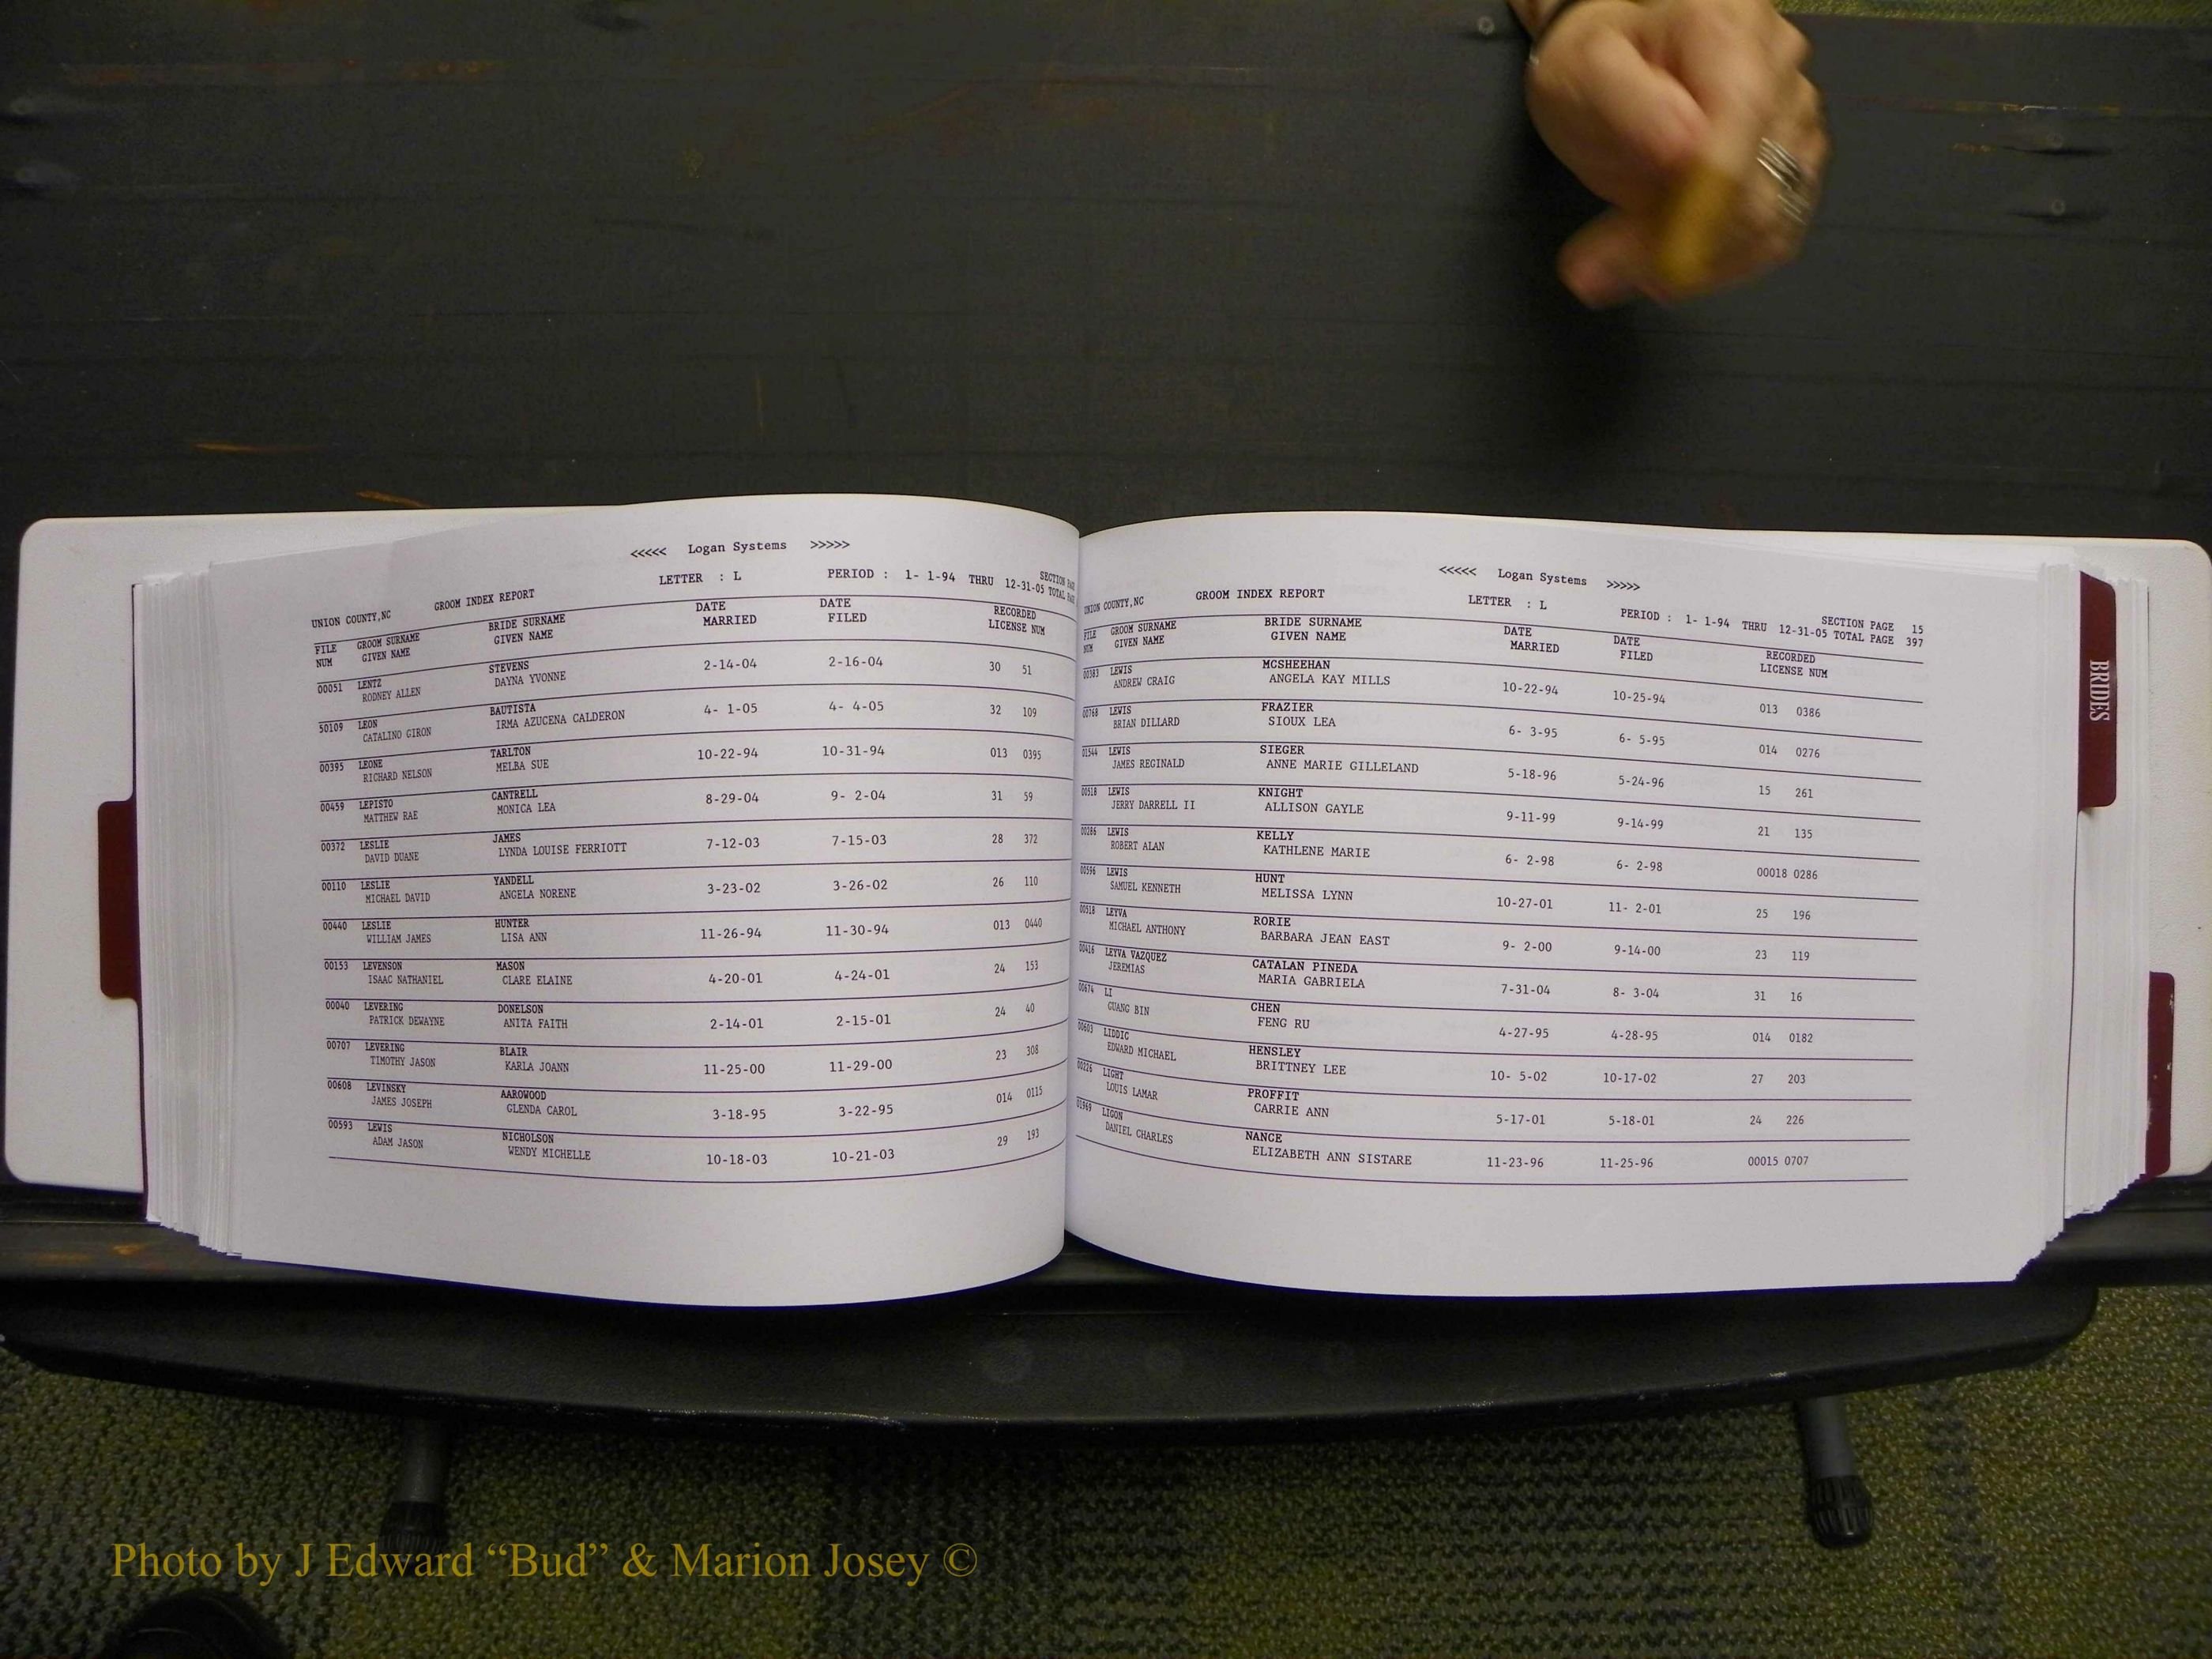 <<<<< Logan Systems >>>>>
UNION COUNTY,NC GROOM INDEX REPORT LETTER : L PERIOD : 1- 1-94 THRU 12-31-05 SECTION
TOTAL
FILE GROOM SURNAME BRIDE SURNAME DATE DATE RECORDED
NUM GIVEN NAME GIVEN NAME MARRIED FILED LICENSE NUM
00051 LENTZ STEVENS 2-14-04 2-16-04 30 51
RODNEY ALLEN DAYNA YVONNE
50109 LEON BAUTISTA 4- 1-05 4- 4-05 32 109
CATALINO GIRON IRMA AZUCENA CALDERON
00395 LEONE TARLTON 10-22-94 10-31-94 013 0395
RICHARD NELSON MELBA SUE
00459 LEPISTO CANTRELL 8-29-04 9- 2-04 31 59
MATTHEW RAE MONICA LEA
00372 LESLIE JAMES 7-12-03 7-15-03 28 372
DAVID DUANE LYNDA LOUISE FERRIOTT
00110 LESLIE YANDELL 3-23-02 3-26-02 26 110
MICHAEL DAVID ANGELA NORENE
00440 LESLIE HUNTER 11-26-94 11-30-94 013 0440
WILLIAM JAMES LISA ANN
00153 LEVENSON MASON 4-20-01 4-24-01 24 153
ISAAC NATHANIEL CLARE ELAINE
00040 LEVERING DONELSON 2-14-01 2-15-01 24 40
PATRICK DEWAYNE ANITA FAITH
00707 LEVERING BLAIR 11-25-00 11-29-00 23 308
TIMOTHY JASON KARLA JOANN
00608 LEVINSKY AAROWOOD 3-18-95 3-22-95 014 0115
JAMES JOSEPH GLENDA CAROL
00593 LEWIS NICHOLSON 10-18-03 10-21-03 29 193
ADAM JASON WENDY MICHELLE
<<<<< Logan Systems >>>>>
UNION COUNTY,NC GROOM INDEX REPORT LETTER : L PERIOD : 1- 1-94 THRU 12-31-05 SECTION PAGE 15
TOTAL PAGE 397
FILE GROOM SURNAME BRIDE SURNAME DATE DATE RECORDED
NUM GIVEN NAME GIVEN NAME MARRIED FILED LICENSE NUM
00383 LEWIS MCSHEEHAN 10-22-94 10-25-94 013 0386
ANDREW CRAIG ANGELA KAY MILLS
00768 LEWIS FRAZIER 6- 3-95 6- 5-95 014 0276
BRIAN DILLARD SIOUX LEA
01544 LEWIS SIEGER 5-18-96 5-24-96 15 261
JAMES REGINALD ANNE MARIE GILLELAND
00518 LEWIS KNIGHT 9-11-99 9-14-99 21 135
JERRY DARRELL II ALLISON GAYLE
00286 LEWIS KELLY 6- 2-98 6- 2-98 00018 0286
ROBERT ALAN KATHLENE MARIE
00596 LEWIS HUNT 10-27-01 11- 2-01 25 196
SAMUEL KENNETH MELISSA LYNN
00518 LEYVA RORIE 9- 2-00 9-14-00 23 119
MICHAEL ANTHONY BARBARA JEAN EAST
00416 LEYVA VAZQUEZ CATALAN PINEDA 7-31-04 8- 3-04 31 16
JEREMIAS MARIA GABRIELA
00674 LI CHEN 4-27-95 4-28-95 014 0182
GUANG BIN FENG RU
00603 LIDDIC HENSLEY 10- 5-02 10-17-02 27 203
EDWARD MICHAEL BRITTNEY LEE
00226 LIGHT PROFFIT 5-17-01 5-18-01 24 226
LOUIS LAMAR CARRIE ANN
01969 LIGON NANCE 11-23-96 11-25-96 00015 0707
DANIEL CHARLES ELIZABETH ANN SISTARE
BRIDES
Photo by J Edward “Bud” & Marion Josey ©